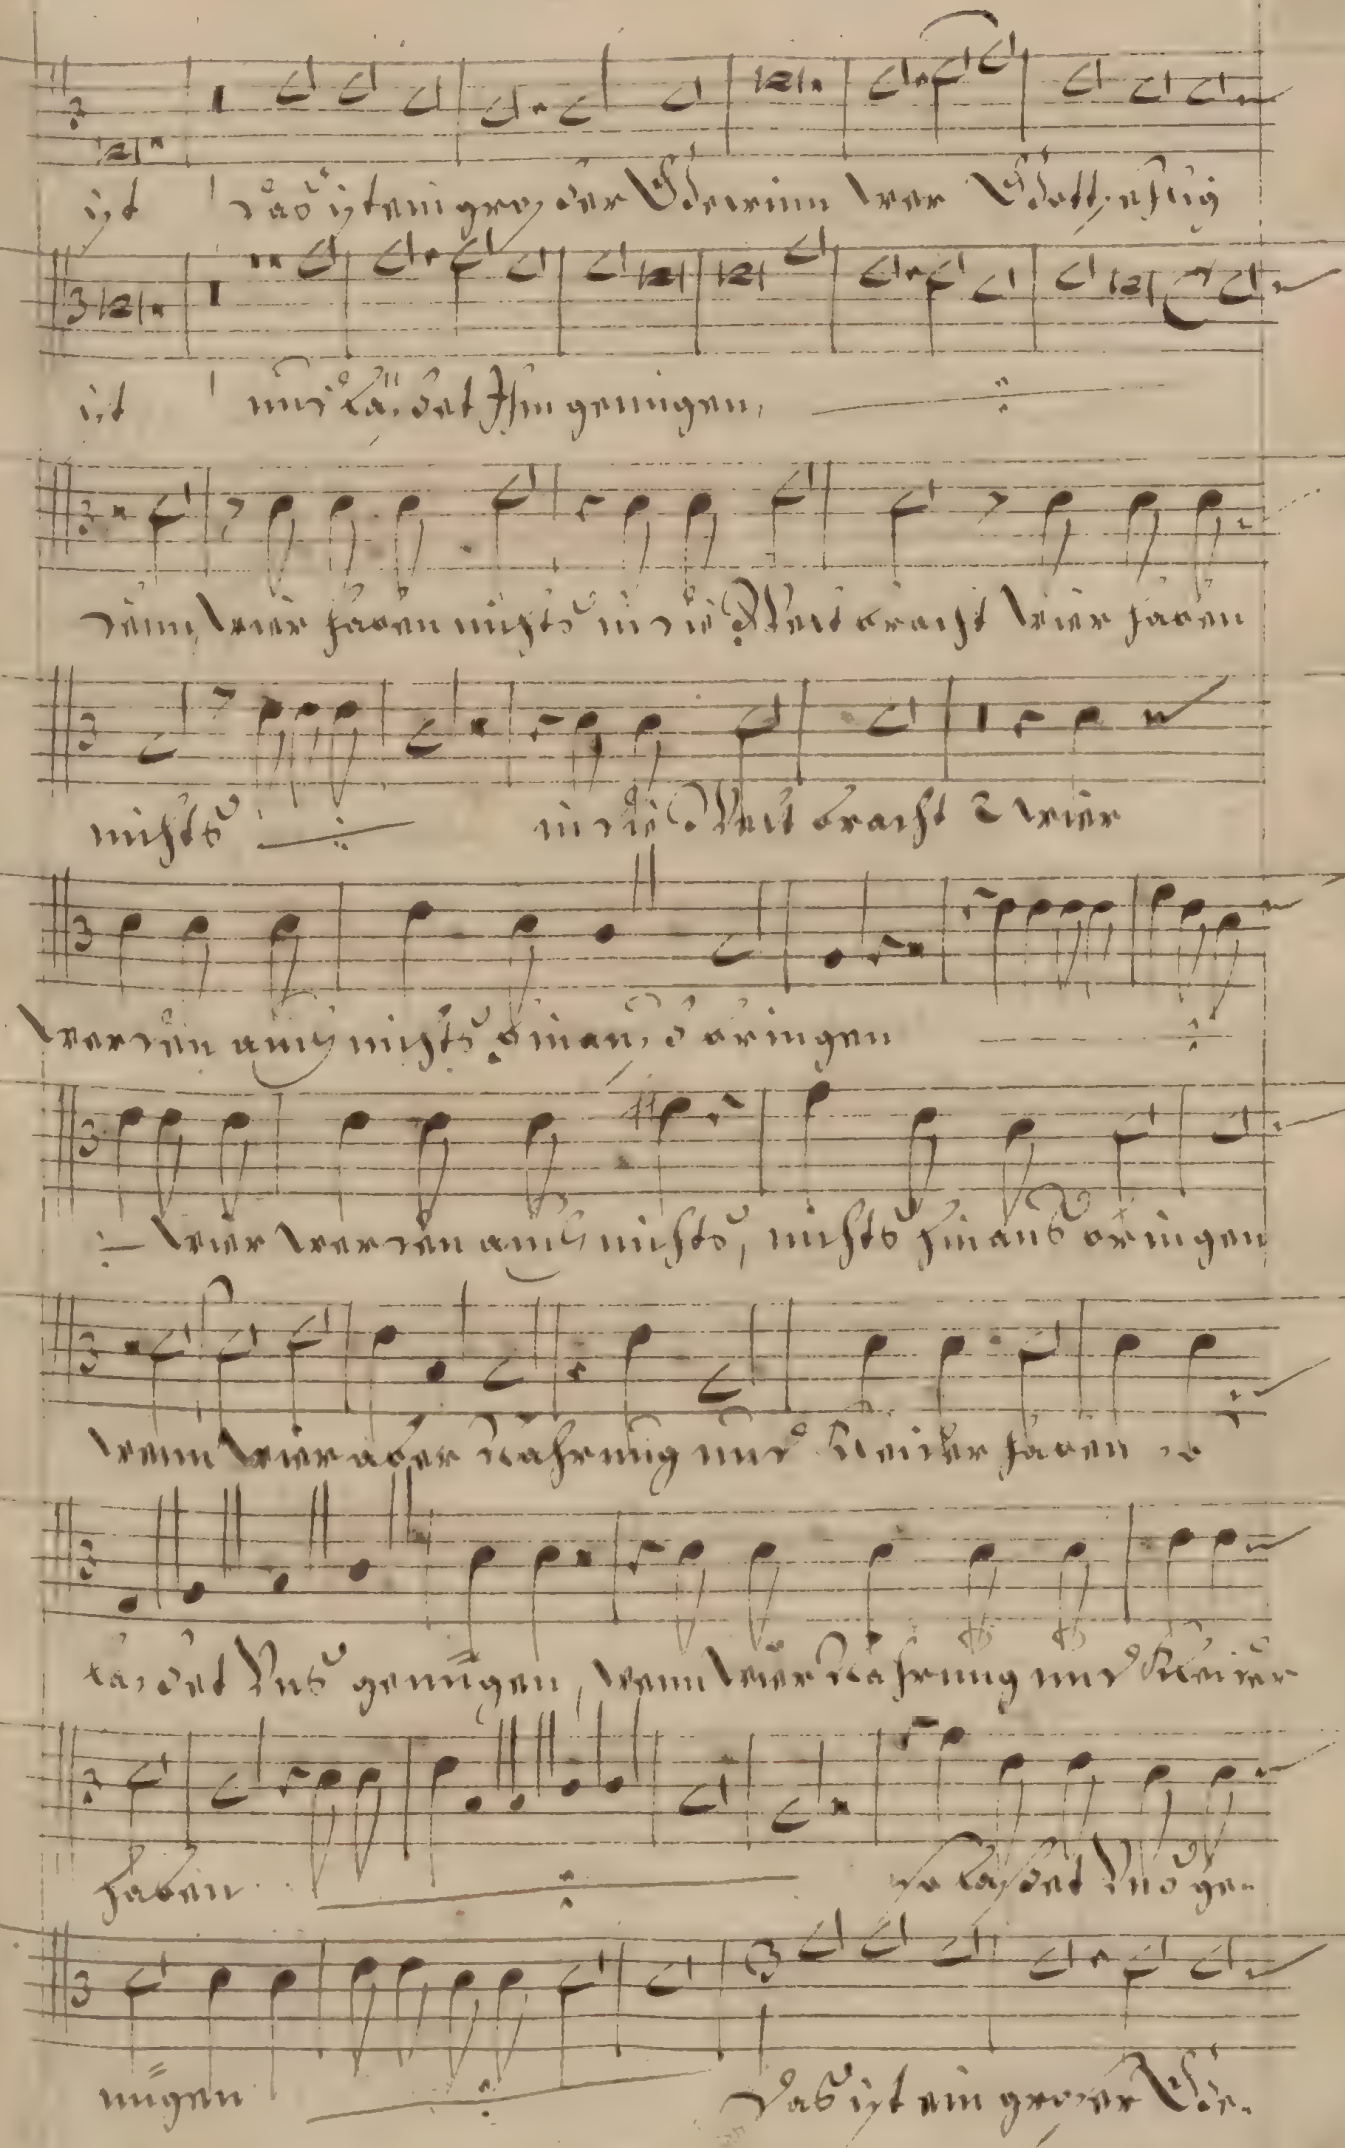 ist das ist ein großer Gewinn wer Gottseelig
ist und läßet Ihm genügen,
denn wier haben nichts in die Welt bracht wier haben
nichts in die Welt bracht wier
werden auch nichts hinauß bringen
wier werden auch nichts, nichts hinaus bringen
wenn wier aber Nahrung und Kleider haben so
laßet Uns genügen, wenn wier Nahrung und Kleider
haben so laßet Uns ge-
nügen Das ist ein großer Ge-